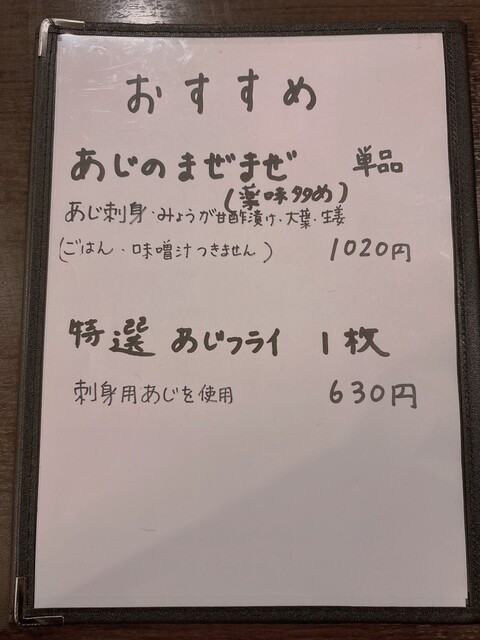 おすすめ
あじのまぜまぜ 単品
(薬味多め)
あじ刺身・みょうが甘酢漬け・大葉・生姜
(ごはん・味噌汁つきません) 1020円
特選 あじフライ 1枚
刺身用あじを使用 630円